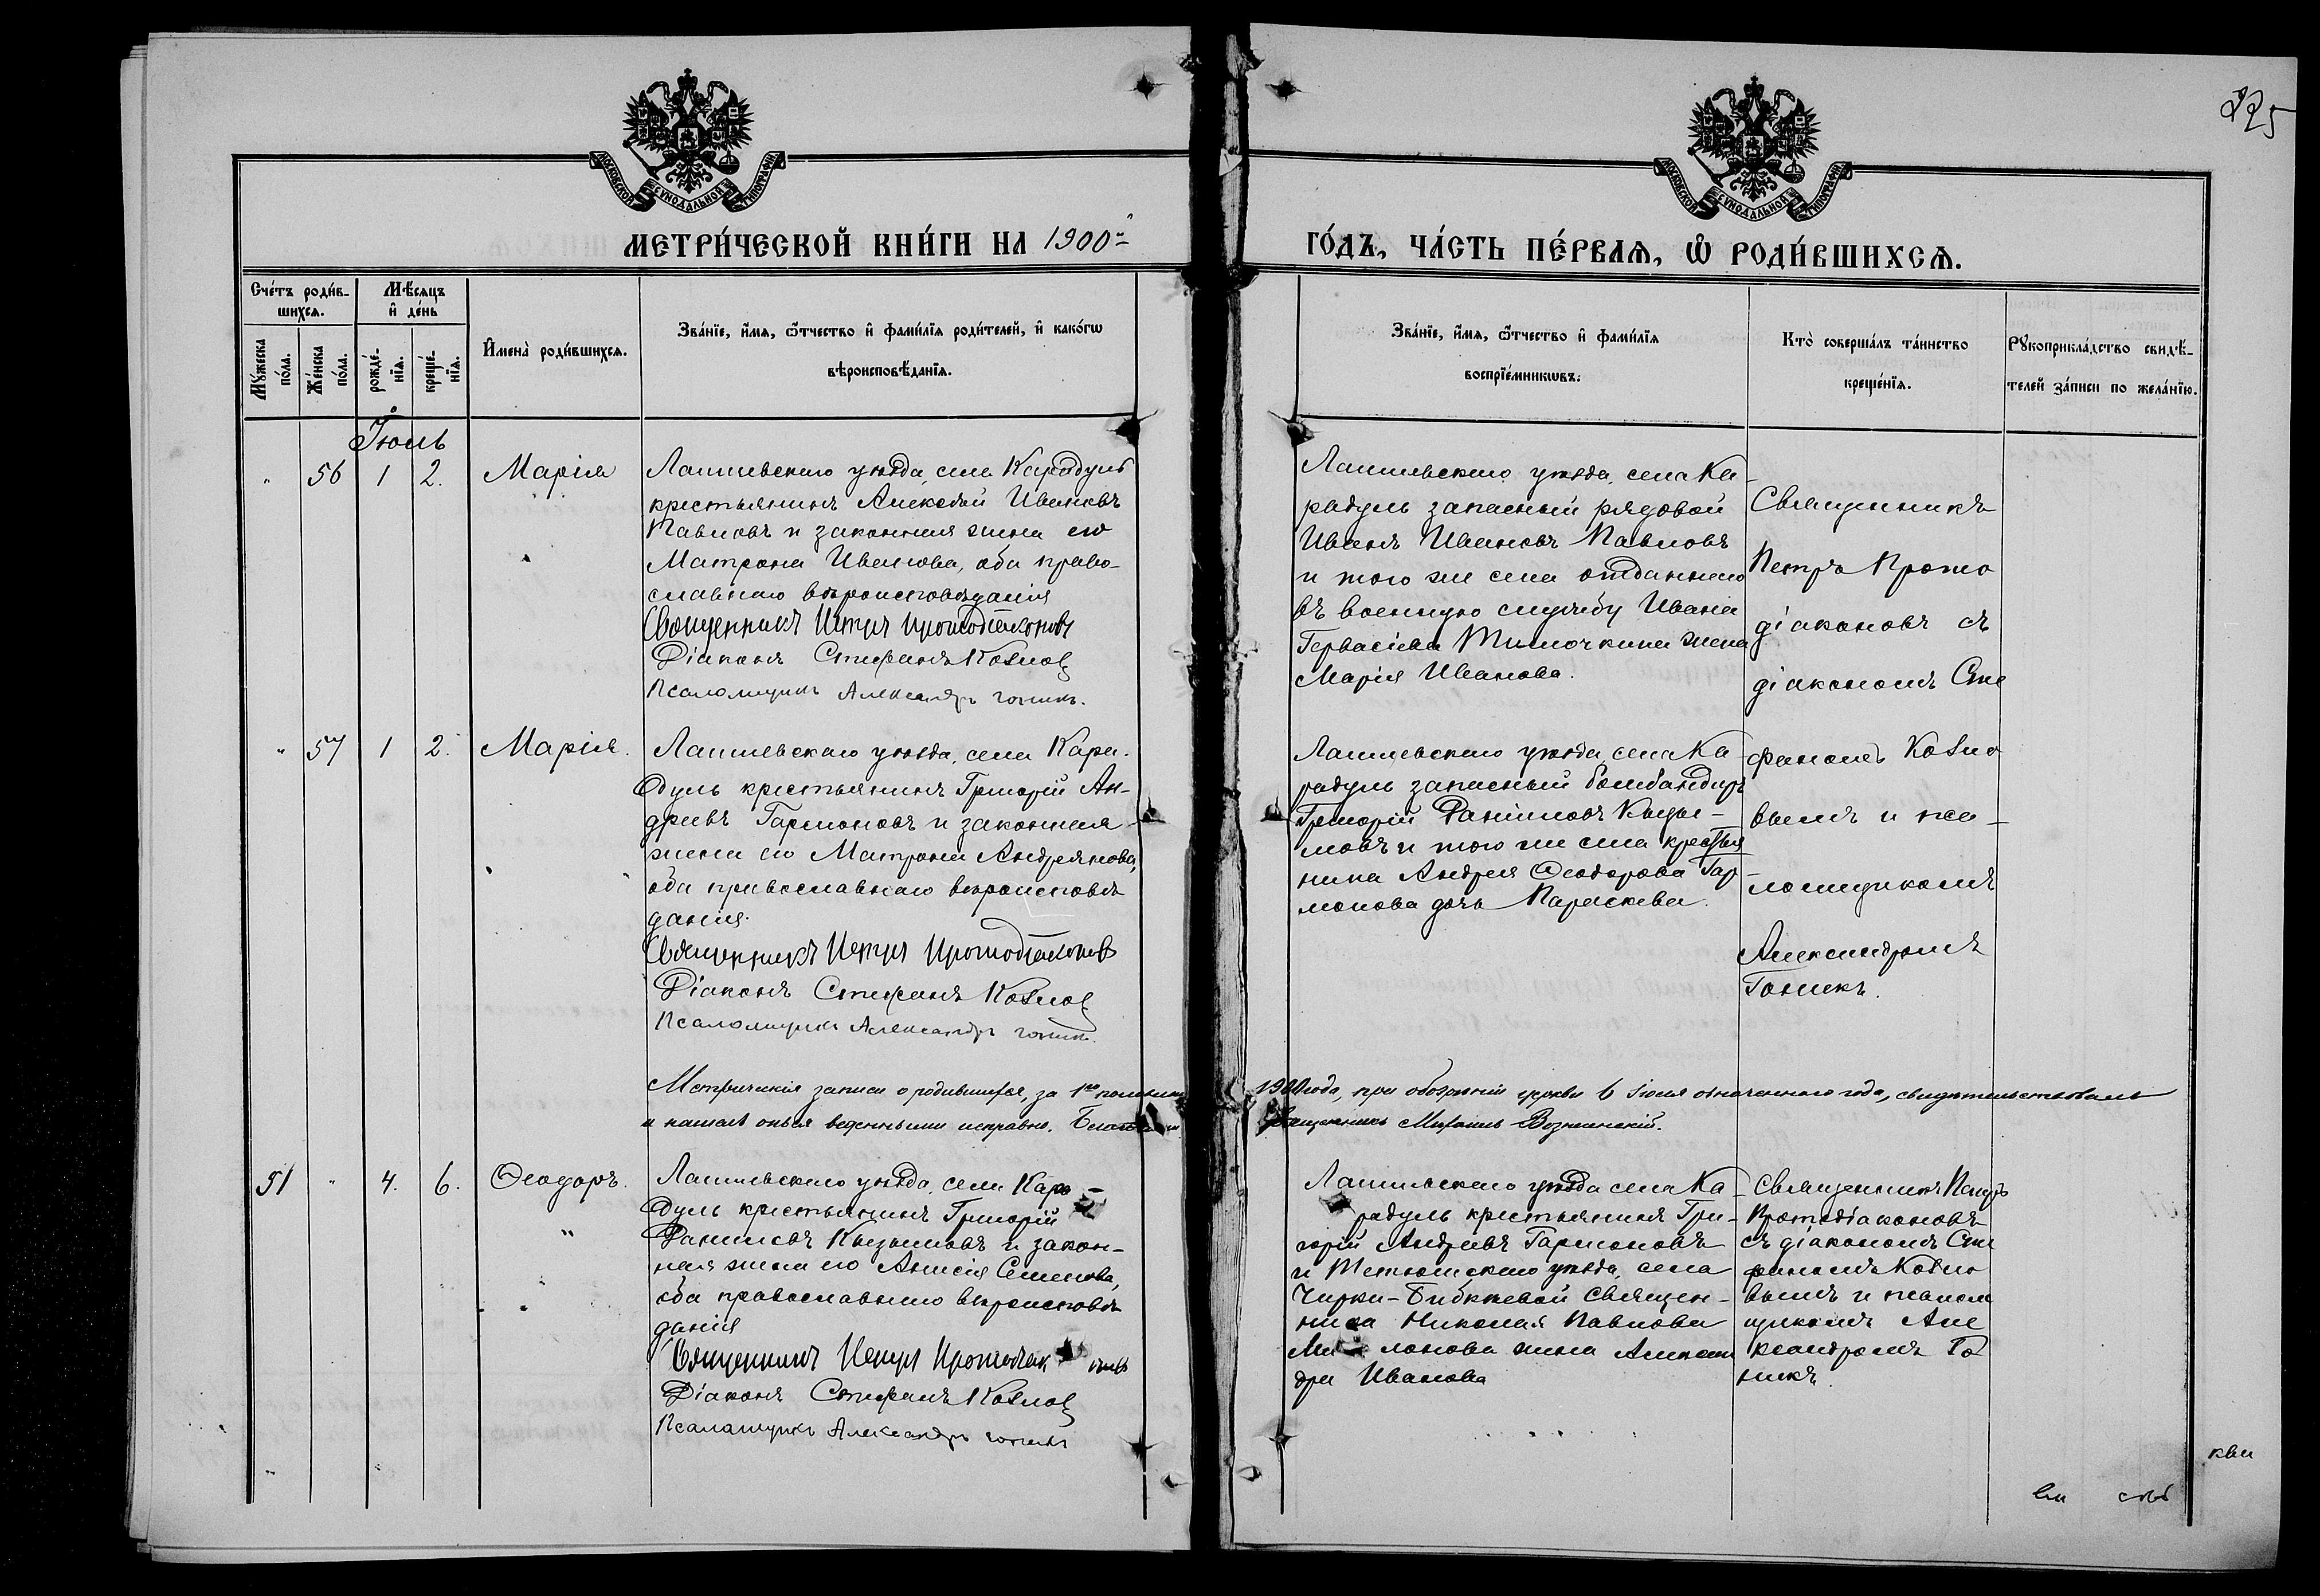 225
МОСКОВСКОЙ СѴНОДАЛЬНОЙ ТИПОГРАФІИ
МОСКОВСКОЙ СѴНОДАЛЬНОЙ ТИПОГРАФІИ
МЕТРИ́ЧЕСКОЙ КНИ́ГИ НА 1900й
ГО́ДЪ, ЧА́СТЬ ПЕ́РВАѦ, Ѡ РОДИ́ВШИХСѦ.
Сче́тъ роди́в-
шихсѧ.
Мѣ́сяцъ
и҆ де́нь
Му́жеска
по́ла.
Же́нска
по́ла.
рожде́-
нїѧ.
креще́-
нїѧ.
И҆мена̀ роди́вшихсѧ.
Зва́нїе, и҆́мѧ, ѻ҆́тчество и҆ фами́лїѧ роди́телей, и҆ како́гѡ
вѣроисповѣ́данїѧ.
Зва́нїе, и҆́мѧ, ѻ҆́тчество и҆ фами́лїѧ
воспрїе́мникѡвъ.
Кто̀ соверша́лъ та́инство
креще́нїѧ.
Рꙋкоприкла́дство свидѣ́-
телей за́писи по жела́нїю.
Іюль
" 56 1 2. Марія
Лаишевскаго уѣзда, села Карадуль
крестьянинъ Алексѣй Ивановъ
Павловъ и законная жена его
Матрона Иванова, оба право-
славнаго вѣроисповѣданія
Священникъ Петръ Протодіаконовъ
Діаконъ Стефанъ Козлов
Псаломщикъ Александръ Гоникъ.
Лаишевскаго уѣзда, села Ка-
радуль запасный рядовой
Иванъ Ивановъ Павловъ
и того же села отданнаго
въ военную службу Ивана
Гервасіева Тимочкина жена
Марія Иванова.
Священникъ
Петръ Прото
діаконовъ съ
діакономъ Сте
" 57 1 2. Марія.
Лаишевскаго уѣзда, села Кара-
дуль крестьянинъ Григорій Ан-
дреевъ Гармоновъ и законная
жена его Матрона Андреянова,
оба православнаго вѣроисповѣ
данія.
Священникъ Петръ Протодіаконовъ
Діаконъ Стефанъ Козлов
Псаломщикъ Александръ Гоникъ.
Лаишевскаго уѣзда, села Ка
радуль запасный бомбандиръ
Григорій Даниловъ Кызы-
мовъ и того же села крестья
нина Андрея Ѳеодорова Гар-
монова дочь Параскева.
фаномъ Козло
вымъ и пса-
ломщикомъ
Александромъ
Гоникъ.
Метрическія записи о родившихся, за 1ю половину 1900 года, при обозрѣніи церкви 6 Іюля означеннаго года, свидѣтельствовалъ
и нашелъ оныя веденными исправно. Священникъ Михаилъ Вознесенскій.
51 " 4. 6. Ѳеодоръ.
Лаишевскаго уѣзда, села Кара-
дуль крестьянинъ Григорій
Даниловъ Кызымовъ и закон-
ная жена его Анисія Семенова,
оба православнаго вѣроисповѣ
данія
Священникъ Петръ
Діаконъ Стефанъ Козлов
Псаломщикъ Александръ Гоникъ
Лаишевскаго уѣзда села Ка-
радуль крестьянинъ Гри-
горій Андреевъ Гармоновъ
и Тетюшскаго уѣзда, села
Чирки-Бибкеевой Священ-
ника Николая Павлова
жена Алексан
дра Иванова
Священникъ Петръ
Протодіаконовъ
съ діакономъ Сте
фаномъ Козло
вымъ и псалом
щикомъ Але
ксандромъ Го
никъ.